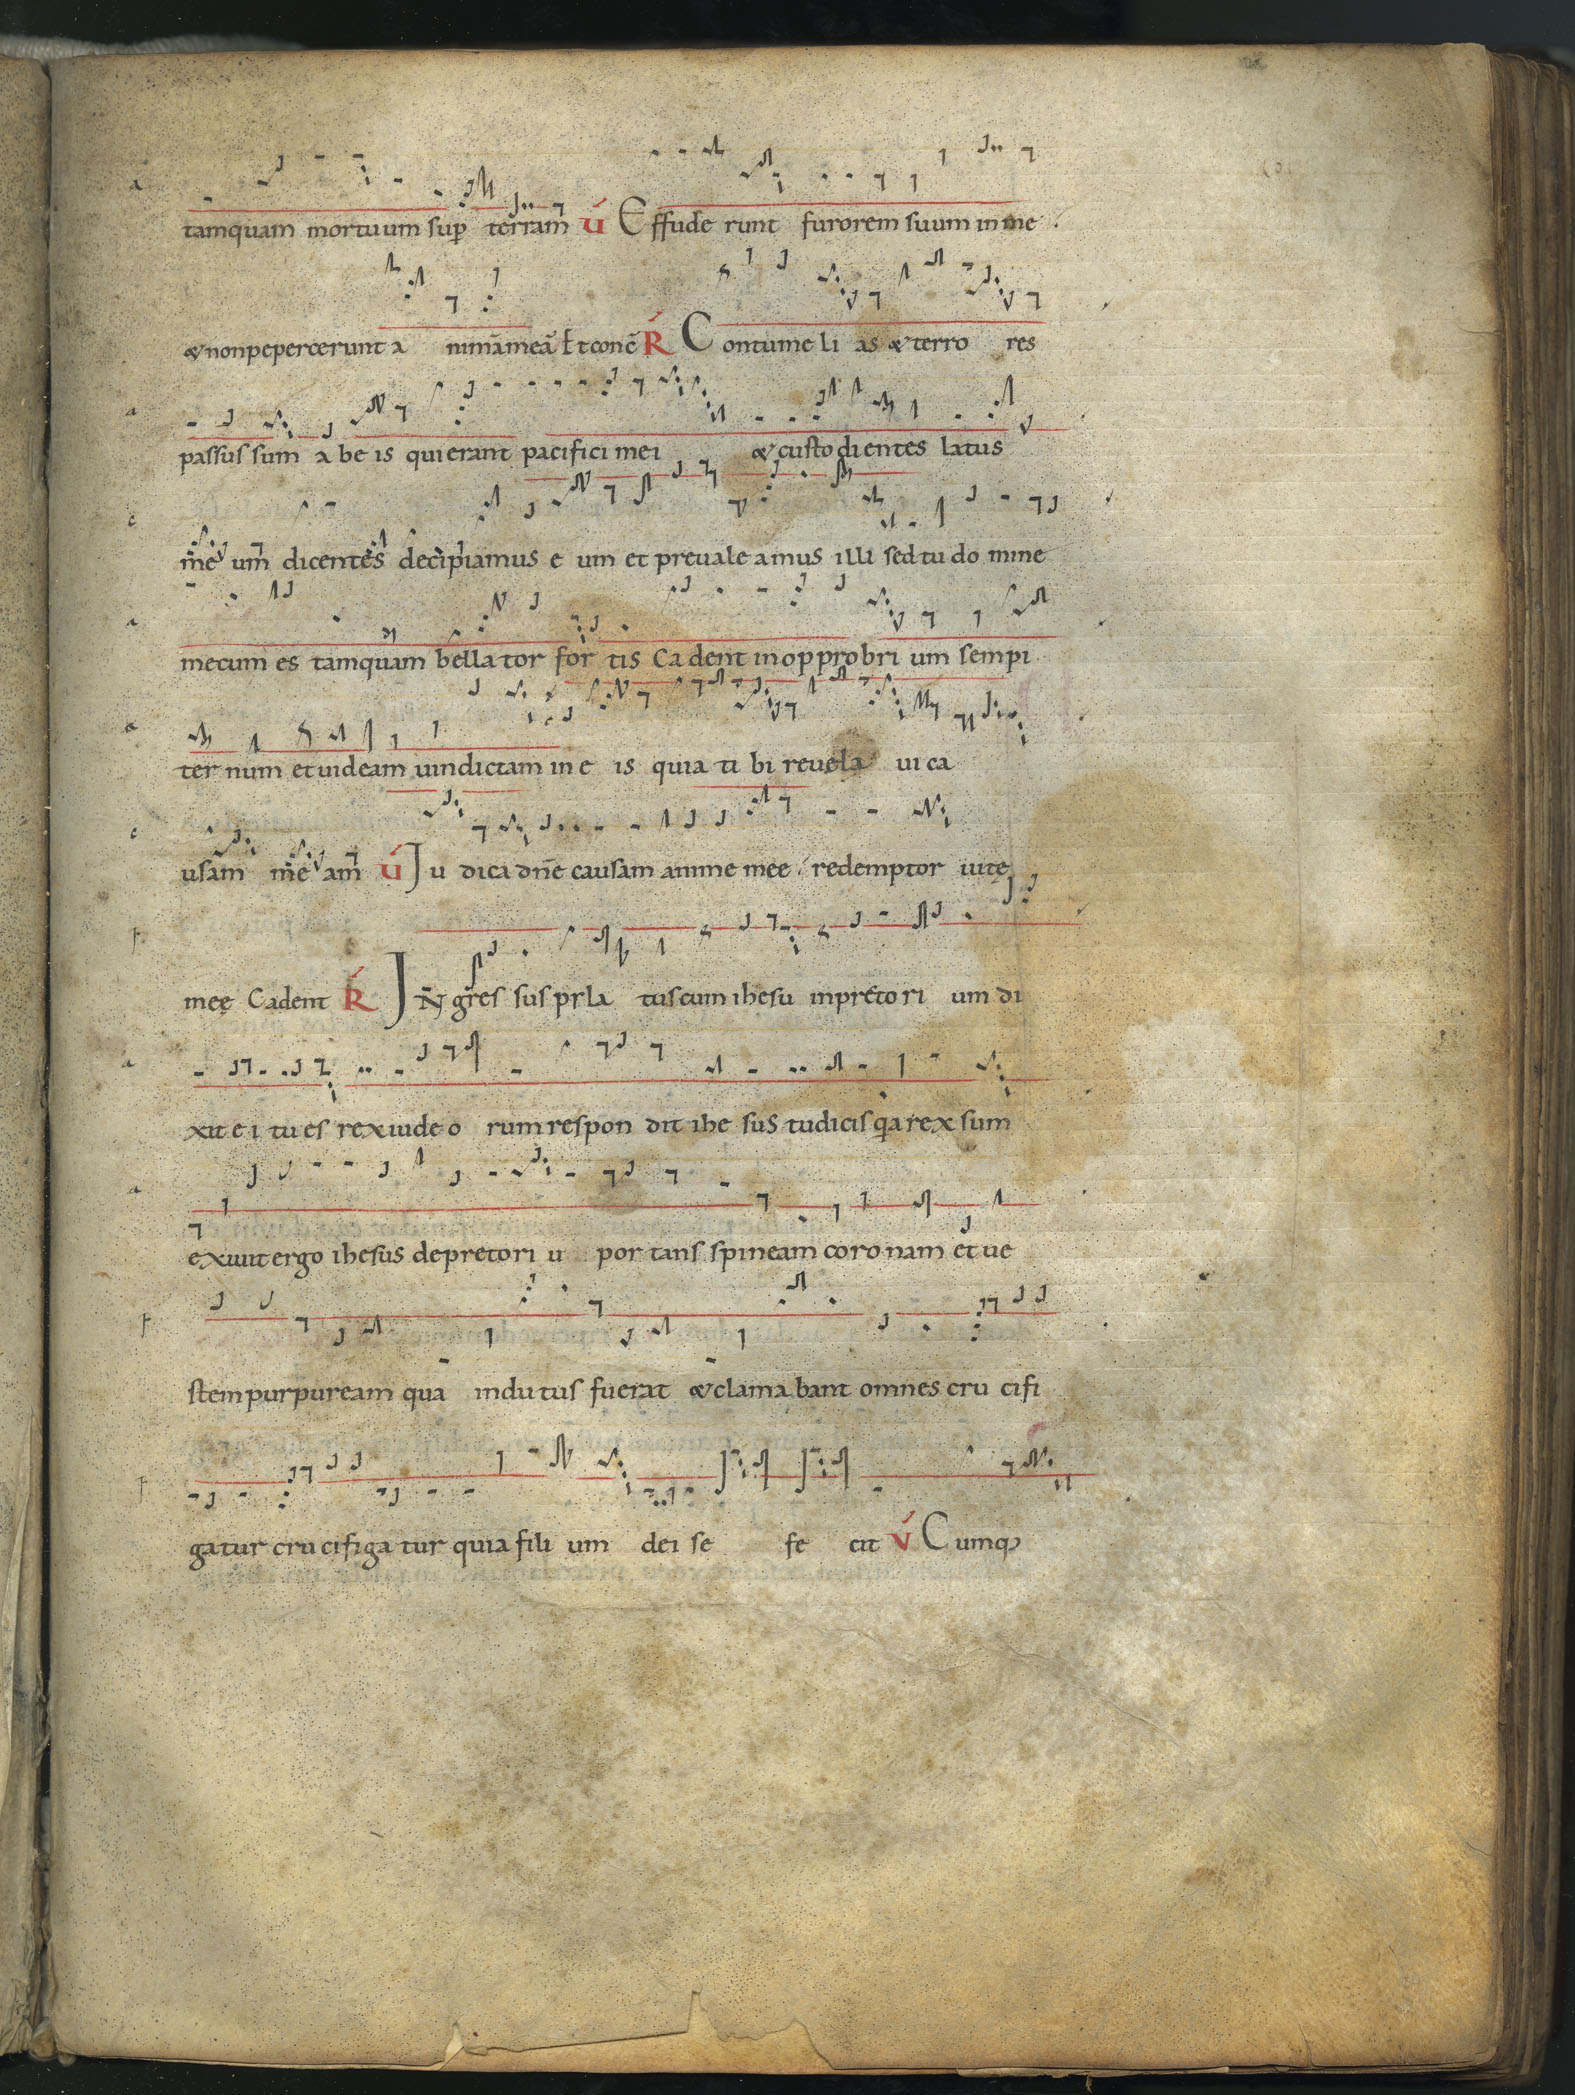 a tamquam mortuum sup terram v́ Effude runt furorem suum in me
& non pepercerunt a nimā meā Et conc̄ Ŕ Contume li as & terro res
a passus sum a be is qui erant pacifici mei & custodientes latus
c me um dicentes decipiamus e um et prevale amus illi sed tu do mine
a mecum es tamquam bella tor for tis Ca dent in opprobri um sempi
a ter num et uideam uindictam in e is quia ti bi reuela ui ca
c usam me am v́ Iu dica dn̄e causam anime mee redemptor uite
f meę Cadent Ŕ IN gres sus pyla tus cum ihesu in pretori um di
a xit e i tu es rex iude o rum respon dit ihe sus tu dicis qa rex sum
a exiuit ergo ihesus de pretori u por tans spineam coronam et ue
f stem purpuream qua indu tus fuerat & clama bant omnes cru cifi
f gatur cru cifiga tur quia fili um dei se fe cit v́ Cumq